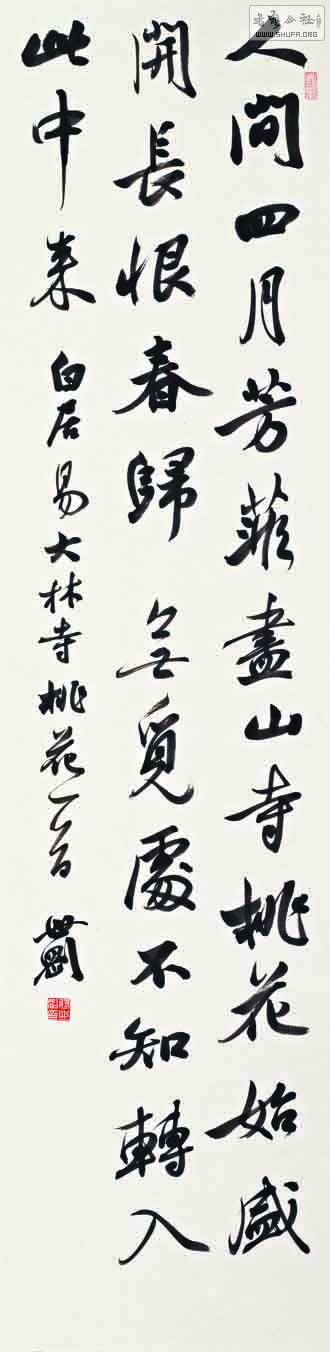 人間四月芳菲盡山寺桃花始盛
開長恨春歸無覓處不知轉入
此中来 白居易大林寺桃花一首 世剛
公社
WWW.SHUFA.ORG